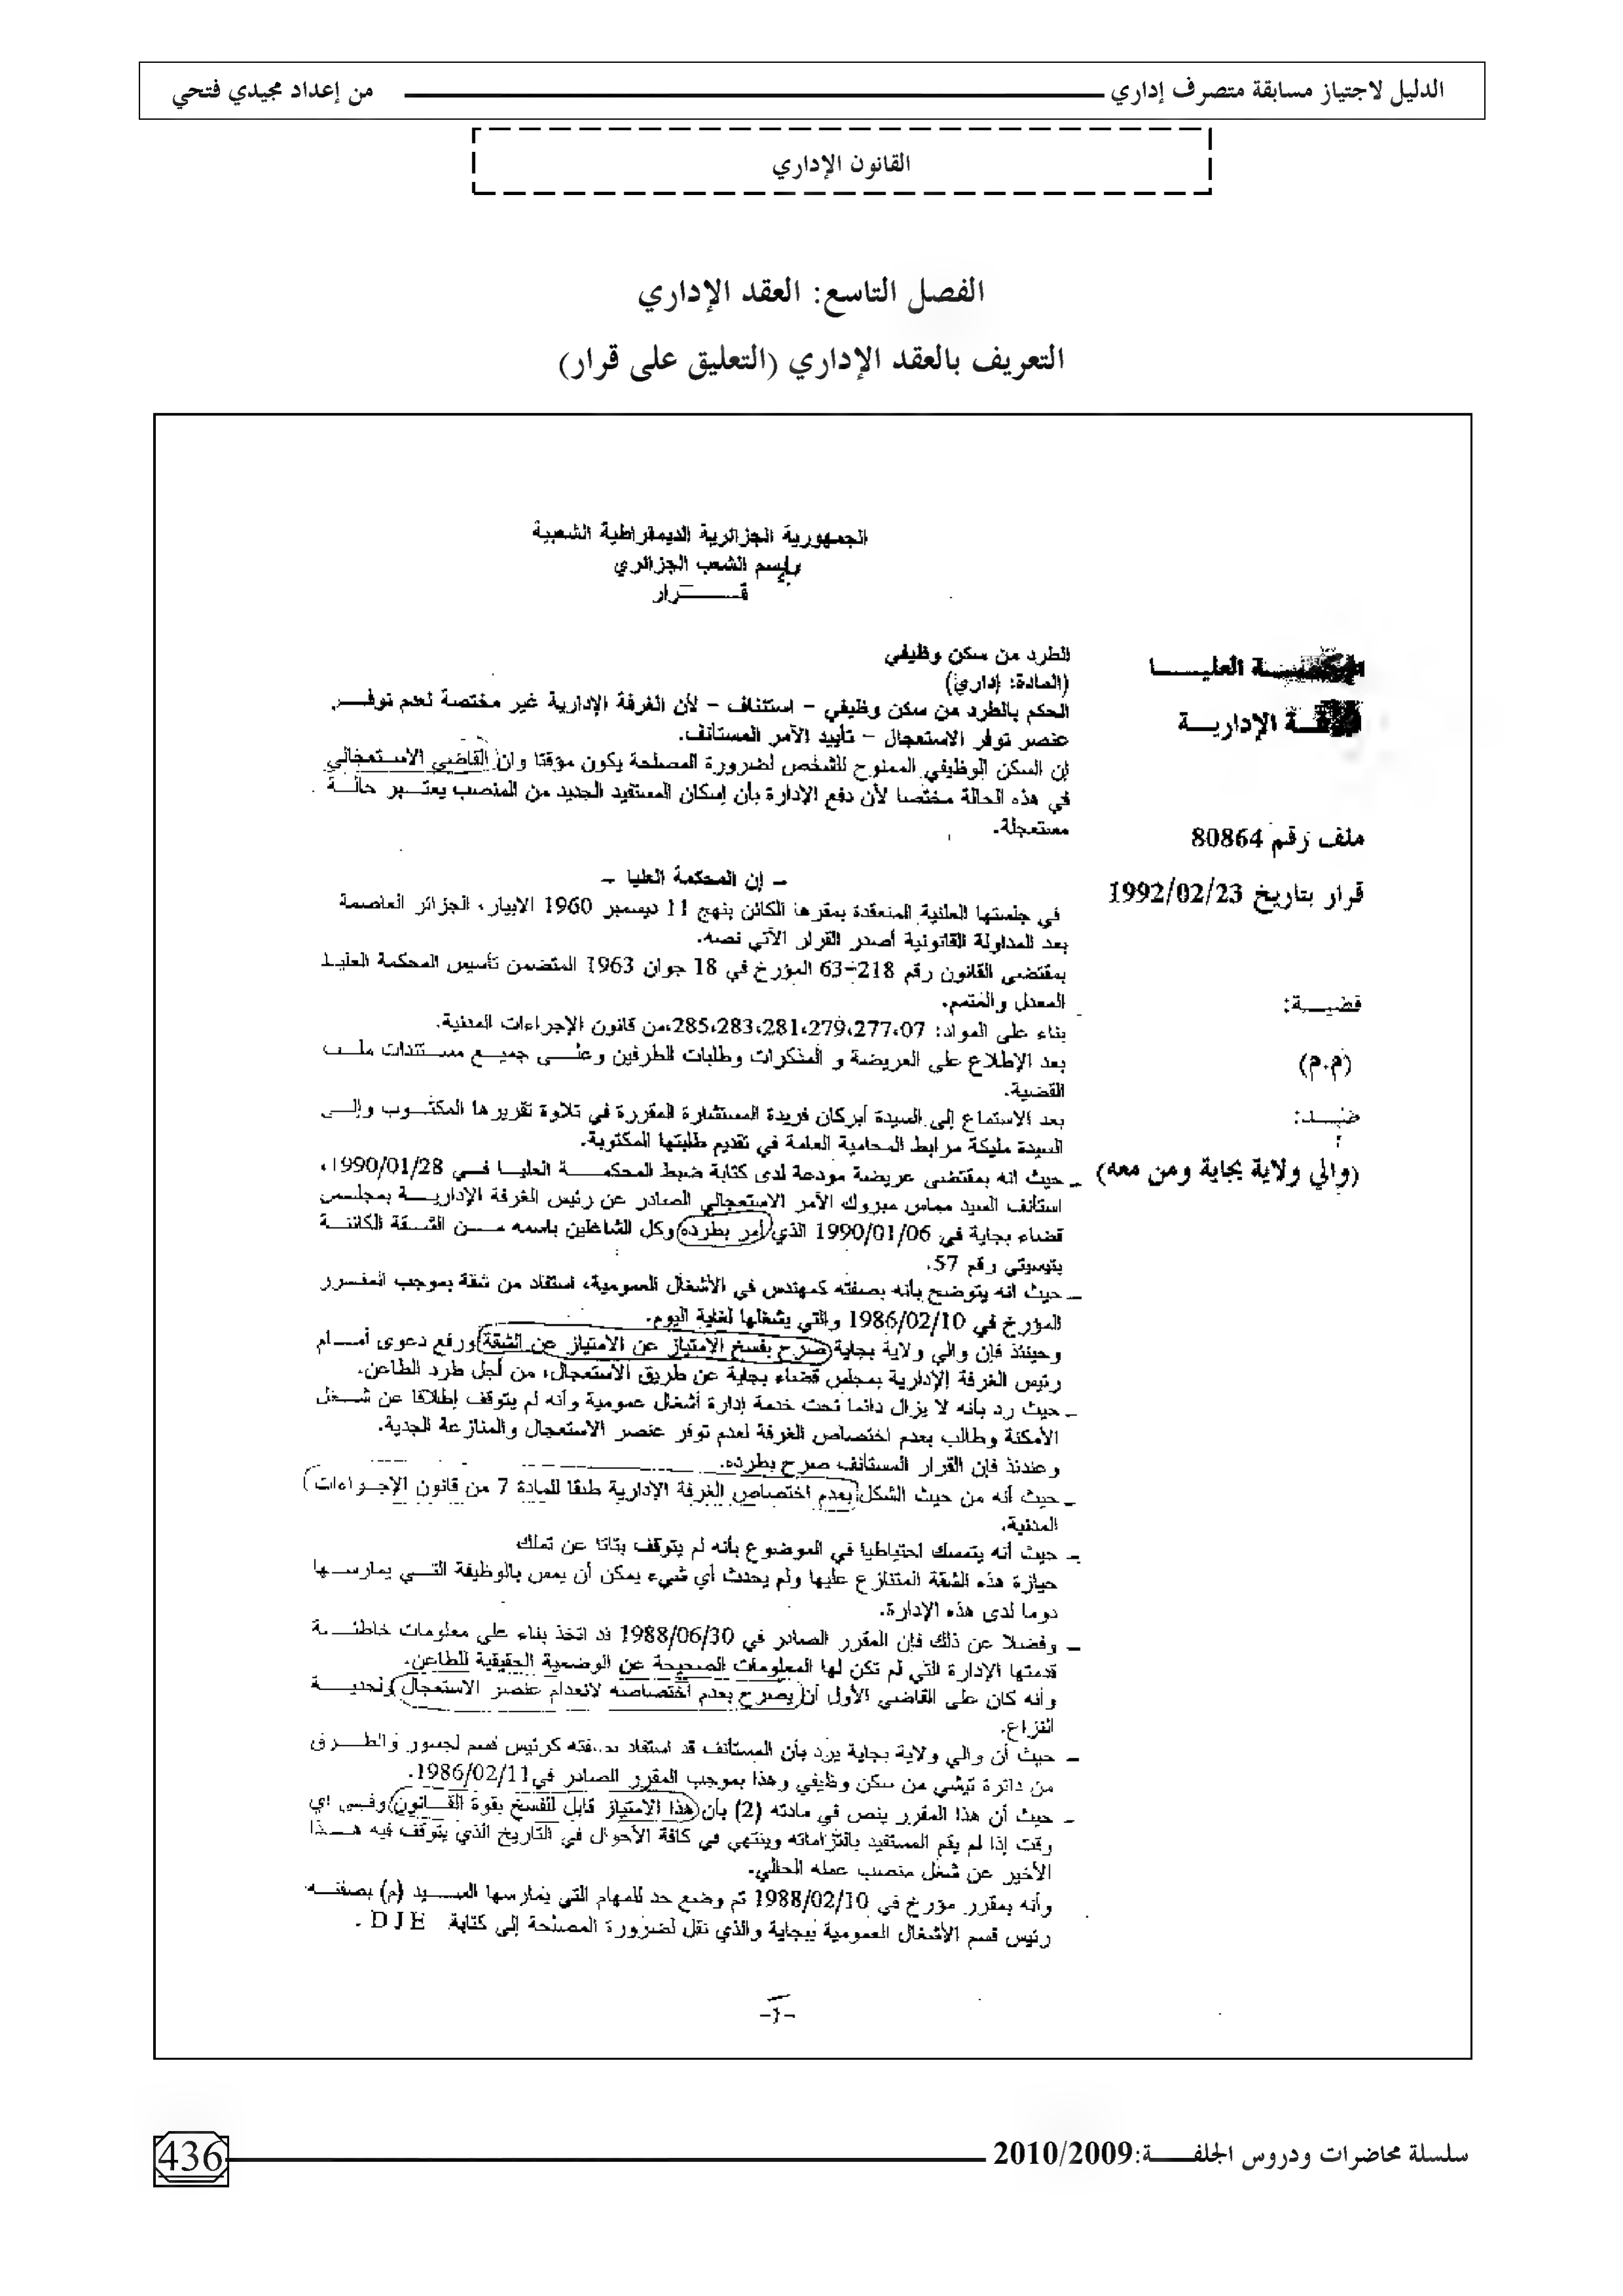 الدليل لاجتياز مسابقة متصرف إداري من إعداد مجيدي فتحي
القانون الإداري
الفصل التاسع: العقد الإداري
التعريف بالعقد الإداري (التعليق على قرار)
الجمهورية الجزائرية الديمقراطية الشعبية
باسم الشعب الجزائري
قـــــرار
العليــــــا
الإداريــة
ملف رقم 80864
قرار بتاريخ 1992/02/23
قضيــة:
(م.م)
ضـد:
(والي ولاية بجاية ومن معه)
الطرد من سكن وظيفي
(المادة: إداري)
الحكم بالطرد من سكن وظيفي - استئناف - لأن الغرفة الإدارية غير مختصة لعدم توفـــر
عنصر توفر الاستعجال - تأييد الأمر المستأنف.
إن السكن الوظيفي الممنوح للشخص لضرورة المصلحة يكون مؤقتا وان القاضي الاستعجالي
في هذه الحالة مختصا لأن دفع الإدارة بأن إسكان المستفيد الجديد من المنصب يعتــبر حالــة
مستعجلة.
- إن المحكمة العليا -
في جلستها العلنية المنعقدة بمقرها الكائن بنهج 11 ديسمبر 1960 الابيار، الجزائر العاصمة
بعد المداولة القانونية أصدر القرار الآتي نصه.
بمقتضى القانون رقم 218-63 المؤرخ في 18 جوان 1963 المتضمن تأسيس المحكمة العليا
المعدل والمتمم.
بناء على المواد: 07،277،279،281،283،285،من قانون الإجراءات المدنية.
بعد الإطلاع على العريضة و المذكرات وطلبات الطرفين وعلــى جميــع مســتندات ملــف
القضية.
بعد الاستماع إلى السيدة أبركان فريدة المستشارة المقررة في تلاوة تقريرها المكتــوب وإلــى
السيدة مليكة مرابط المحامية العامة في تقديم طلبتها المكتوبة.
- حيث انه بمقتضى عريضة مودعة لدى كتابة ضبط المحكمــة العليــا فــي 1990/01/28،
استأنف السيد مماس مبروك الأمر الاستعجالي الصادر عن رئيس الغرفة الإداريــة بمجلــس
قضاء بجاية في 1990/01/06 الذي أمر بطرده وكل الشاغلين باسمه مــن الشــقة الكائنــة
بتيبوتي رقم 57.
- حيث انه يتوضح بأنه بصفته كمهندس في الأشغال العمومية، استفاد من شقة بموجب المقــرر
المؤرخ في 1986/02/10 والتي يشغلها لغاية اليوم.
وحينئذ فإن والي ولاية بجاية صرح بفسخ الامتياز عن الامتياز عن الشقة ورفع دعوى أمــام
رئيس الغرفة الإدارية بمجلس قضاء بجاية عن طريق الاستعجال، من أجل طرد الطاعن.
- حيث رد بأنه لا يزال دائما تحت خدمة إدارة أشغال عمومية وأنه لم يتوقف إطلاقا عن شــغل
الأمكنة وطالب بعدم اختصاص الغرفة لعدم توفر عنصر الاستعجال والمنازعة الجدية.
وعندئذ فإن القرار المستأنف صرح بطرده.
- حيث أنه من حيث الشكل بعدم اختصاص الغرفة الإدارية طبقا للمادة 7 من قانون الإجراءات
المدنية.
- حيث أنه يتمسك احتياطيا في الموضوع بأنه لم يتوقف بتاتا عن تملك
حيازة هذه الشقة المتنازع عليها ولم يحدث أي شيء يمكن أن يمس بالوظيفة التــي يمارســها
دوما لدى هذه الإدارة.
- وفضلا عن ذلك فإن المقرر الصادر في 1988/06/30 قد اتخذ بناء على معلومات خاطئــة
قدمتها الإدارة التي لم تكن لها المعلومات الصحيحة عن الوضعية الحقيقية للطاعن.
وأنه كان على القاضي الأول أن يصرح بعدم اختصاصه لانعدام عنصر الاستعجال ولجديــة
النزاع.
- حيث أن والي ولاية بجاية يرد بأن المستأنف قد استفاد بصفته كرئيس قسم لجسور والطــرق
من دائرة تيشي من سكن وظيفي وهذا بموجب المقرر الصادر في 1986/02/11.
- حيث أن هذا المقرر ينص في مادته (2) بأن هذا الامتياز قابل للفسخ بقوة القــانون وفــي أي
وقت إذا لم يقم المستفيد بالتزاماته وينتهي في كافة الأحوال في التاريخ الذي يتوقف فيه هــذا
الأخير عن شغل منصب عمله الحالي.
وأنه بمقرر مؤرخ في 1988/02/10 تم وضع حد للمهام التي يمارسها الســيد (م) بصفتــه
رئيس قسم الأشغال العمومية ببجاية والذي نقل لضرورة المصلحة إلى كتابة DJE .
-1-
سلسلة محاضرات ودروس الجلفـــة:2010/2009
436